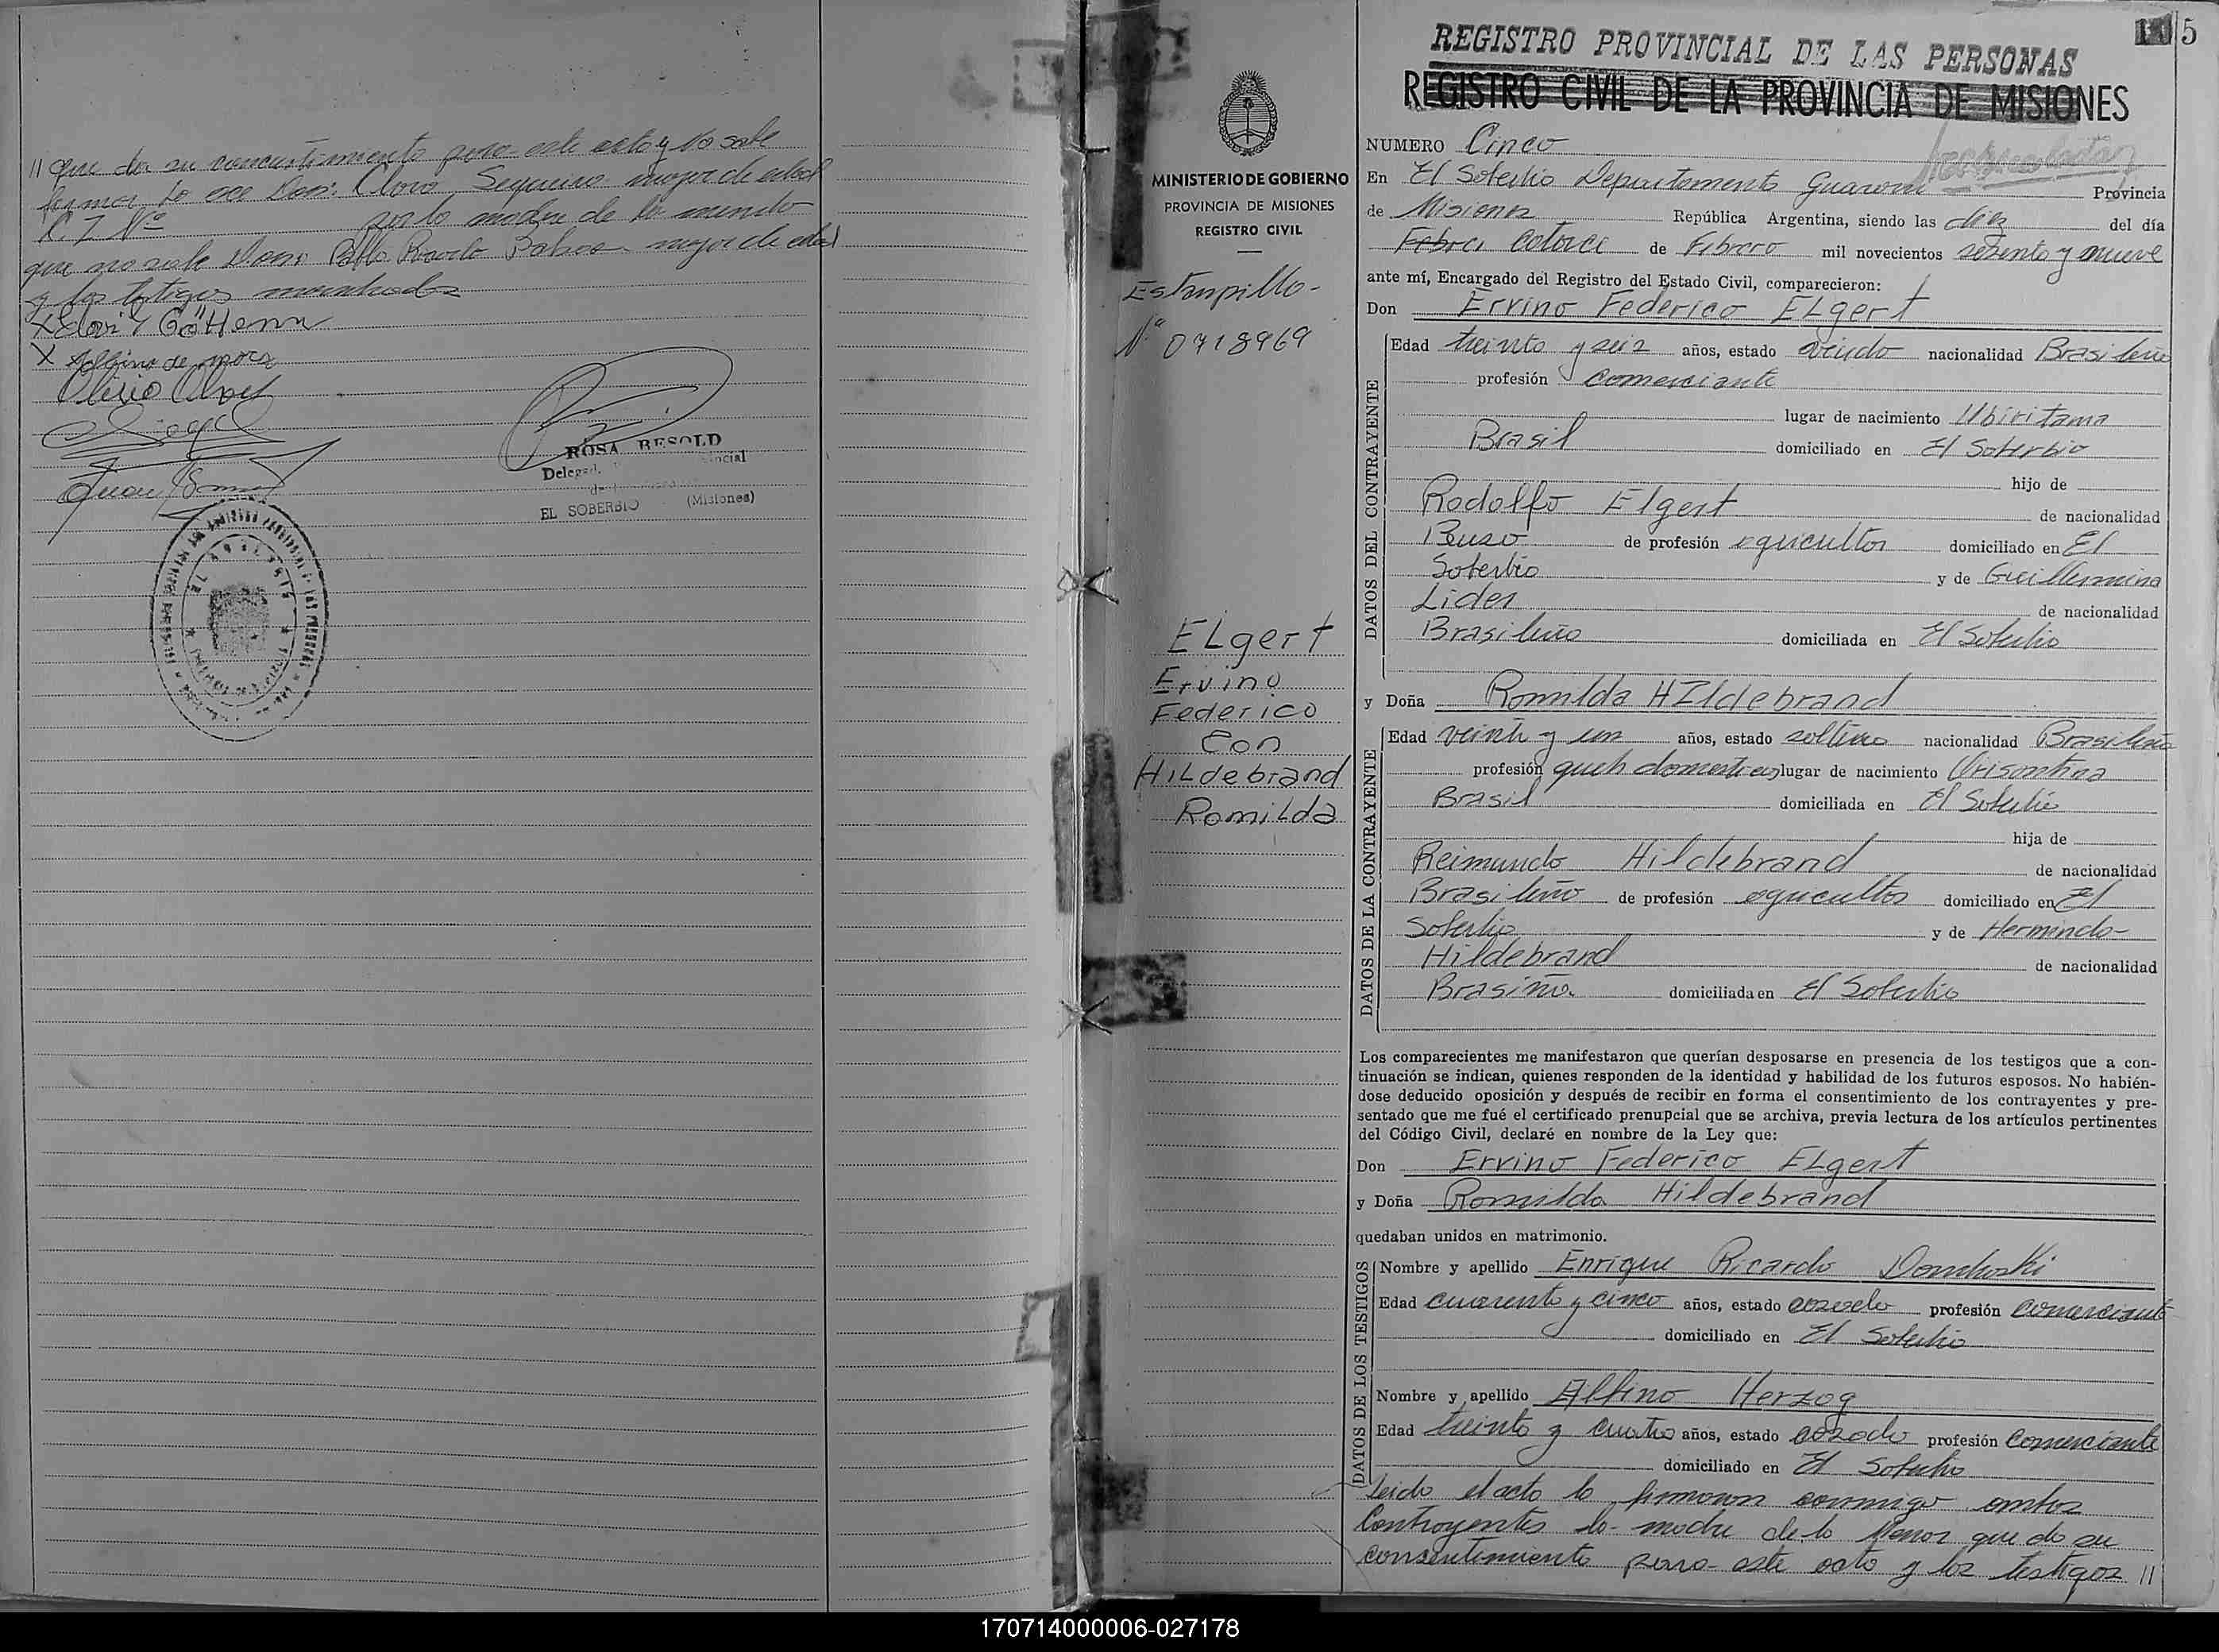 // que da su concentimiento para este acto y no sabe
firmar lo ace Don: Claro Sequeiro mayor de edad
C. I. Nº por la madre de la menor
que no sabe Don: Pablo Ricardo mayor de edad
y los testigos
Olivio
ROSA BESOLD
EL SOBERBIO (Misiones)
5
REGISTRO PROVINCIAL DE LAS PERSONAS
REGISTRO CIVIL DE LA PROVINCIA DE MISIONES
MINISTERIO DE GOBIERNO
PROVINCIA DE MISIONES
REGISTRO CIVIL
Estanpilla-
Nº 0718969
ELgert
Ervino
Federico
Con
HiLdebrand
RomiLda
NUMERO Cinco
En El Soberbio Departamento Guarani Provincia
de Misiones República Argentina, siendo las diez del día
Febre Catorce de Febrero mil novecientos sesenta y nueve
ante mí, Encargado del Registro del Estado Civil, comparecieron:
Don Ervino Federico ELgert
DATOS DEL CONTRAYENTE
Edad treinta y seis años, estado viudo nacionalidad Brasileño
profesión Comerciante
lugar de nacimiento Ubiritama
Brasil domiciliado en El Soberbio
hijo de
Rodolfo Elgert de nacionalidad
Ruso de profesión agricultor domiciliado en El
Soberbio y de Guillermina
Lider de nacionalidad
Brasileña domiciliada en El Soberbio
y Doña Romilda HIldebrand
DATOS DE LA CONTRAYENTE
Edad veinte y un años, estado soltera nacionalidad Brasileña
profesión queh domesticos lugar de nacimiento Crisontina
Brasil domiciliada en El Soberbio
hija de
Reimundo Hildebrand de nacionalidad
Brasileño de profesión agricultor domiciliado en El
Soberbio y de Herminda-
Hildebrand de nacionalidad
Brasiña domiciliada en El Soberbio
Los comparecientes me manifestaron que querían desposarse en presencia de los testigos que a con-
tinuación se indican, quienes responden de la identidad y habilidad de los futuros esposos. No habién-
dose deducido oposición y después de recibir en forma el consentimiento de los contrayentes y pre-
sentado que me fué el certificado prenupcial que se archiva, previa lectura de los artículos pertinentes
del Código Civil, declaré en nombre de la Ley que:
Don Ervino Federico ELgert
y Doña Romilda Hildebrand
quedaban unidos en matrimonio.
DATOS DE LOS TESTIGOS
Nombre y apellido Enrique Ricardo Domhoski
Edad cuarenta y cinco años, estado casado profesión Comerciante
domiciliado en El Soberbio
Nombre y apellido Albino Herzog
Edad treinta y cuatro años, estado casado profesión Comerciante
domiciliado en El Soberbio
Leido el acto lo firmaron conmigo ambos
Contrayentes la madre de la Menor que da su
consentimiento para este acto y los testigos //
170714000006-027178